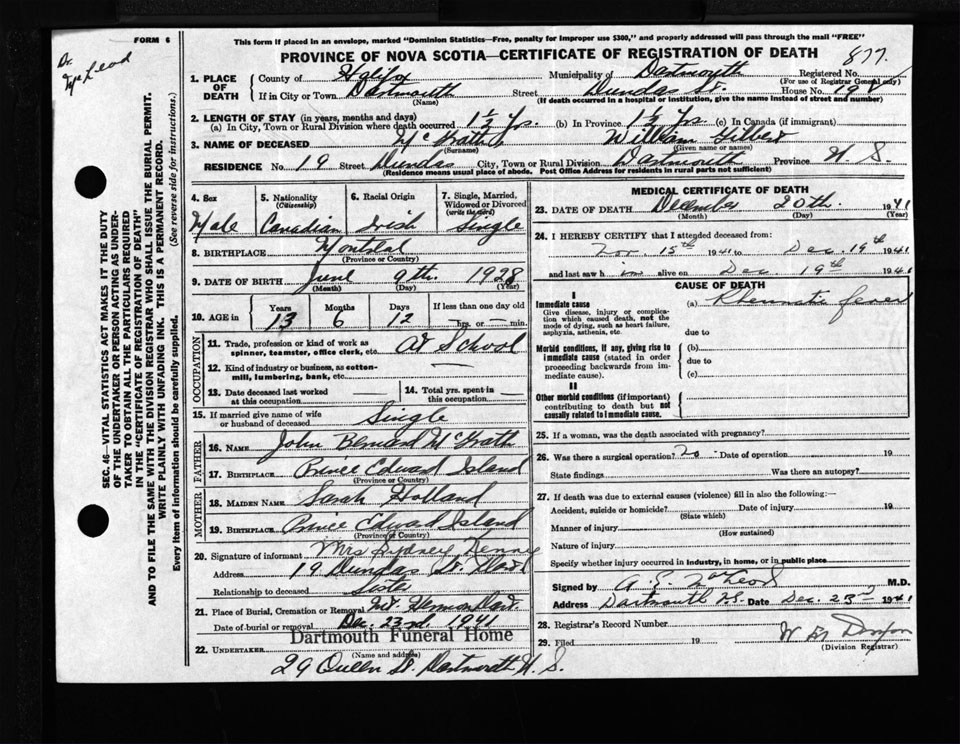 FORM 6
Dr. McLeod
This form if placed in an envelope, marked "Dominion Statistics—Free, penalty for improper use $300," and properly addressed will pass through the mail "FREE"
PROVINCE OF NOVA SCOTIA—CERTIFICATE OF REGISTRATION OF DEATH
877
1. PLACE OF DEATH County of Halifax Municipality of Dartmouth Registered No.
(For use of Registrar General only)
If in City or Town Dartmouth Street Dundas St. House No. 19
(Name) (If death occurred in a hospital or institution, give the name instead of street and number)
2. LENGTH OF STAY (in years, months and days)
(a) In City, Town or Rural Division where death occurred 1 1/2 Yrs. (b) In Province 1 1/2 Yrs. (c) In Canada (if immigrant)
3. NAME OF DECEASED McGrath William Gilbert
(Surname) (Given name or names)
RESIDENCE No. 19 Street Dundas City, Town or Rural Division Dartmouth Province N. S.
(Residence means usual place of abode. Post Office Address for residents in rural parts not sufficient)
4. Sex 5. Nationality (Citizenship) 6. Racial Origin 7. Single, Married, Widowed or Divorced (write the word)
Male Canadian Irish Single
8. BIRTHPLACE Montreal
(Province or Country)
9. DATE OF BIRTH June 9th. 1928
(Month) (Day) (Year)
10. AGE in Years Months Days If less than one day old
13 6 12 hrs. or min.
OCCUPATION
11. Trade, profession or kind of work as spinner, teamster, office clerk, etc. At School
12. Kind of industry or business, as cotton-mill, lumbering, bank, etc.
13. Date deceased last worked at this occupation
14. Total yrs. spent in this occupation
15. If married give name of wife or husband of deceased Single
FATHER
16. NAME John Bernard McGrath
17. BIRTHPLACE Prince Edward Island
(Province or Country)
MOTHER
18. MAIDEN NAME Sarah Holland
19. BIRTHPLACE Prince Edward Island
(Province or Country)
20. Signature of informant Mrs Sydney
Address 19 Dundas St. Dart
Relationship to deceased Sister
21. Place of Burial, Cremation or Removal Mt. Hermon Dart.
Date of burial or removal Dec. 23rd 1941
Dartmouth Funeral Home
22. UNDERTAKER
(Name and address)
29 Queen St. Dartmouth N. S.
MEDICAL CERTIFICATE OF DEATH
23. DATE OF DEATH December 20th. 1941
(Month) (Day) (Year)
24. I HEREBY CERTIFY that I attended deceased from:
Nov. 15th 1941 to Dec. 19th 1941
and last saw him alive on Dec. 19th 1941
CAUSE OF DEATH
I
Immediate cause (a) Rheumatic fever
Give disease, injury or complication which caused death, not the mode of dying, such as heart failure, asphyxia, asthenia, etc.
due to
Morbid conditions, if any, giving rise to immediate cause (stated in order proceeding backwards from immediate cause).
(b)
due to
(c)
II
Other morbid conditions (if important) contributing to death but not causally related to immediate cause.
25. If a woman, was the death associated with pregnancy?
26. Was there a surgical operation? No Date of operation 19
State findings Was there an autopsy?
27. If death was due to external causes (violence) fill in also the following:—
Accident, suicide or homicide? Date of injury 19
(State which)
Manner of injury
(How sustained)
Nature of injury
Specify whether injury occurred in industry, in home, or in public place
Signed by A. E. McLeod M.D.
Address Dartmouth N.S. Date Dec. 23rd 1941
28. Registrar's Record Number
29. Filed 19
(Division Registrar)
SEC. 46—VITAL STATISTICS ACT MAKES IT THE DUTY
OF THE UNDERTAKER OR PERSON ACTING AS UNDER-
TAKER TO OBTAIN ALL THE PARTICULARS REQUIRED
IN THE "CERTIFICATE OF REGISTRATION OF DEATH"
AND TO FILE THE SAME WITH THE DIVISION REGISTRAR WHO SHALL ISSUE THE BURIAL PERMIT.
WRITE PLAINLY WITH UNFADING INK. THIS IS A PERMANENT RECORD.
Every item of information should be carefully supplied. (See reverse side for instructions.)